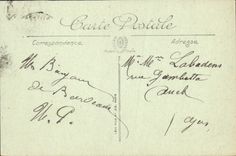 Carte Postale
Correspondance
Adresse
Un Bonjour
de Bordeaux
M. Mme Labadens
rue Gambetta
Auch
Gers